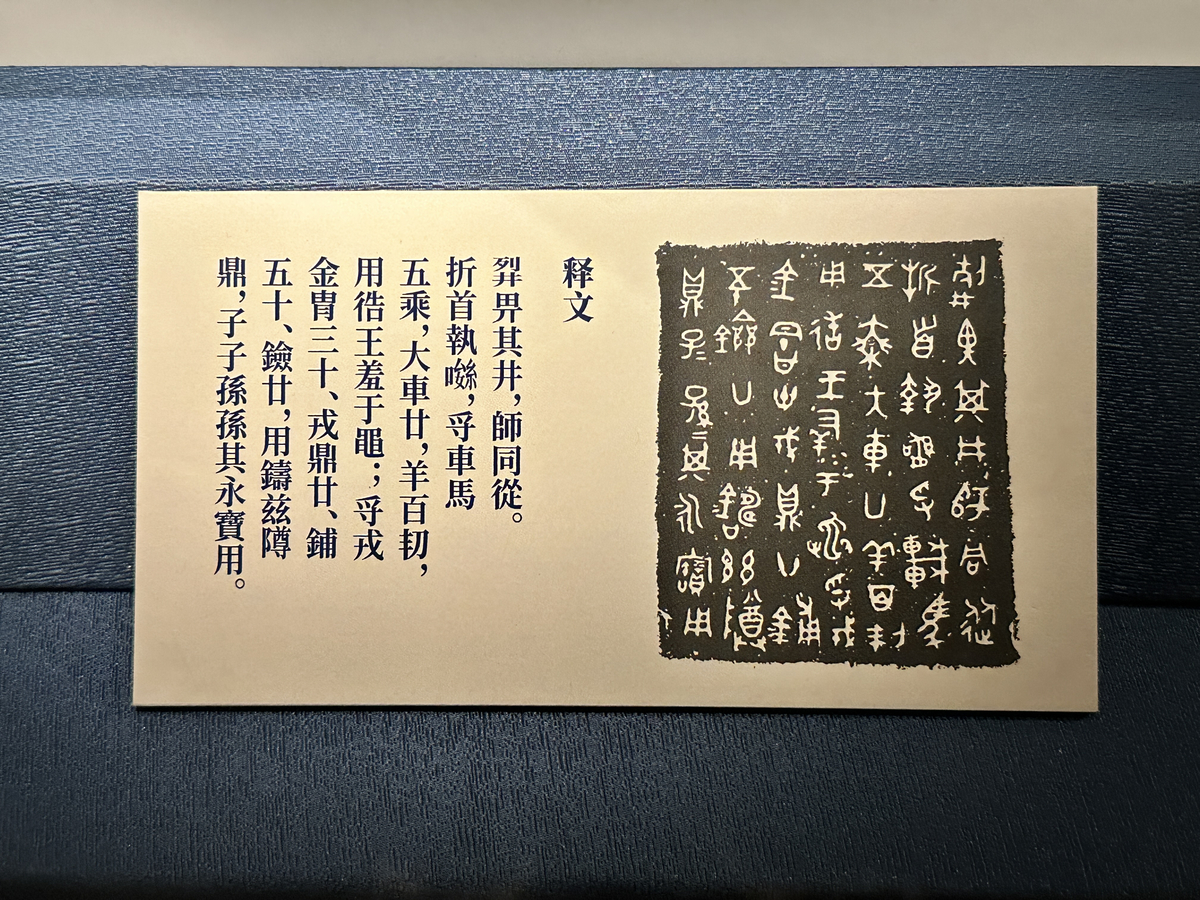 释文
畀其井，師同從。
折首執，孚車馬
五乘，大車廿，羊百㓞，
用徣王羞于黽；孚戎
金冑三十、戎鼎廿、鋪
五十、鐱廿，用鑄兹
鼎，子子孫孫其永寶用。